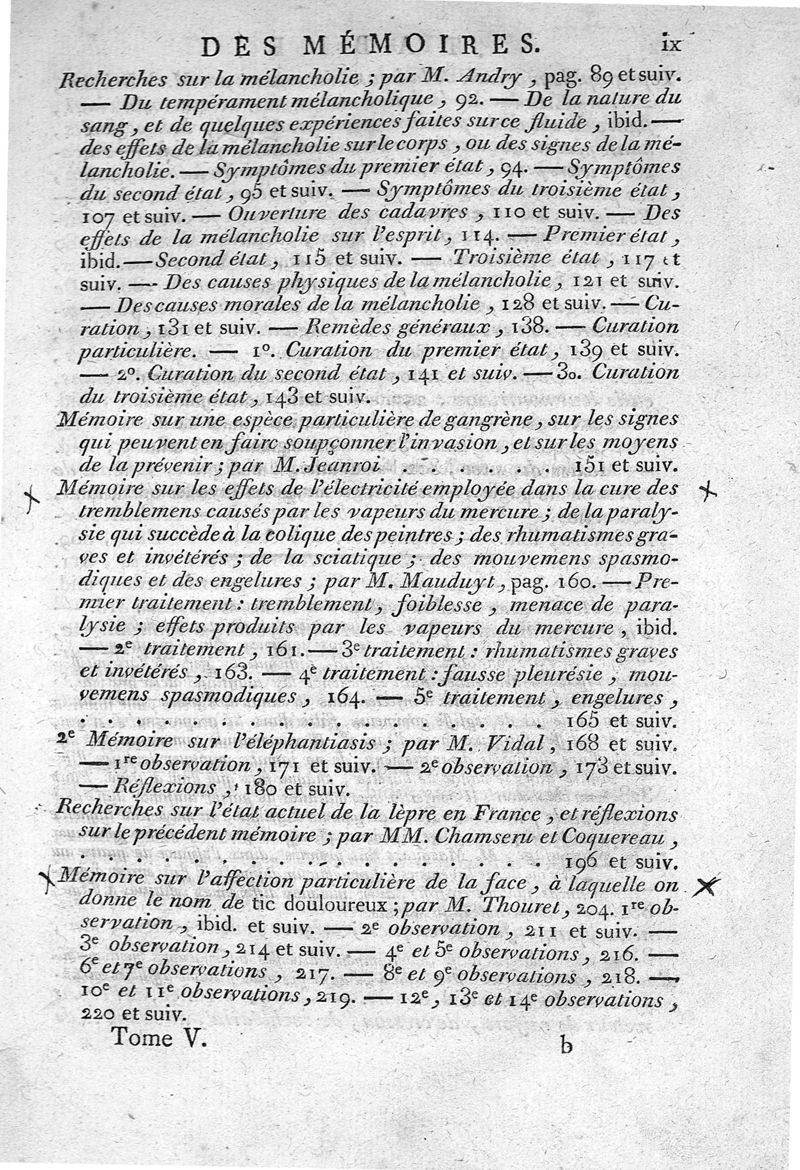 DES MÉMOIRES. ix
Recherches sur la mélancholie ; par M. Andry, pag. 89 et suiv.
— Du tempérament mélancholique, 92. — De la nature du
sang, et de quelques expériences faites sur ce fluide, ibid. —
des effets de la mélancholie sur le corps, ou des signes de la mé-
lancholie. — Symptômes du premier état, 94. — Symptômes
du second état, 95 et suiv. — Symptômes du troisième état,
107 et suiv. — Ouverture des cadavres, 110 et suiv. — Des
effets de la mélancholie sur l'esprit, 114. — Premier état,
ibid. — Second état, 115 et suiv. — Troisième état, 117 et
suiv. — Des causes physiques de la mélancholie, 121 et suiv.
— Des causes morales de la mélancholie, 128 et suiv. — Cu-
ration, 131 et suiv. — Remèdes généraux, 138. — Curation
particulière. — 1º. Curation du premier état, 139 et suiv.
— 2º. Curation du second état, 141 et suiv. — 3o. Curation
du troisième état, 143 et suiv.
Mémoire sur une espèce particulière de gangrène, sur les signes
qui peuvent en faire soupçonner l'invasion, et sur les moyens
de la prévenir ; par M. Jeanroi . . . . . 151 et suiv.
Mémoire sur les effets de l'électricité employée dans la cure des
tremblemens causés par les vapeurs du mercure ; de la paraly-
sie qui succède à la colique des peintres ; des rhumatismes gra-
ves et invétérés ; de la sciatique ; des mouvemens spasmo-
diques et des engelures ; par M. Mauduyt, pag. 160. — Pre-
mier traitement : tremblement, foiblesse, menace de para-
lysie ; effets produits par les vapeurs du mercure, ibid.
— 2e traitement, 161. — 3e traitement : rhumatismes graves
et invétérés, 163. — 4e traitement : fausse pleurésie, mou-
vemens spasmodiques, 164. — 5e traitement, engelures,
. . . . . . . . . . . . . . . . . 165 et suiv.
2e Mémoire sur l'éléphantiasis ; par M. Vidal, 168 et suiv.
— 1re observation, 171 et suiv. — 2e observation, 173 et suiv.
— Réflexions, 180 et suiv.
Recherches sur l'état actuel de la lèpre en France, et réflexions
sur le précédent mémoire ; par MM. Chamseru et Coquereau,
. . . . . . . . . . . . . . . . . 196 et suiv.
Mémoire sur l'affection particulière de la face, à laquelle on
donne le nom de tic douloureux ; par M. Thouret, 204. 1re ob-
servation, ibid. et suiv. — 2e observation, 211 et suiv. —
3e observation, 214 et suiv. — 4e et 5e observations, 216. —
6e et 7e observations, 217. — 8e et 9e observations, 218. —
10e et 11e observations, 219. — 12e, 13e et 14e observations,
220 et suiv.
Tome V. b